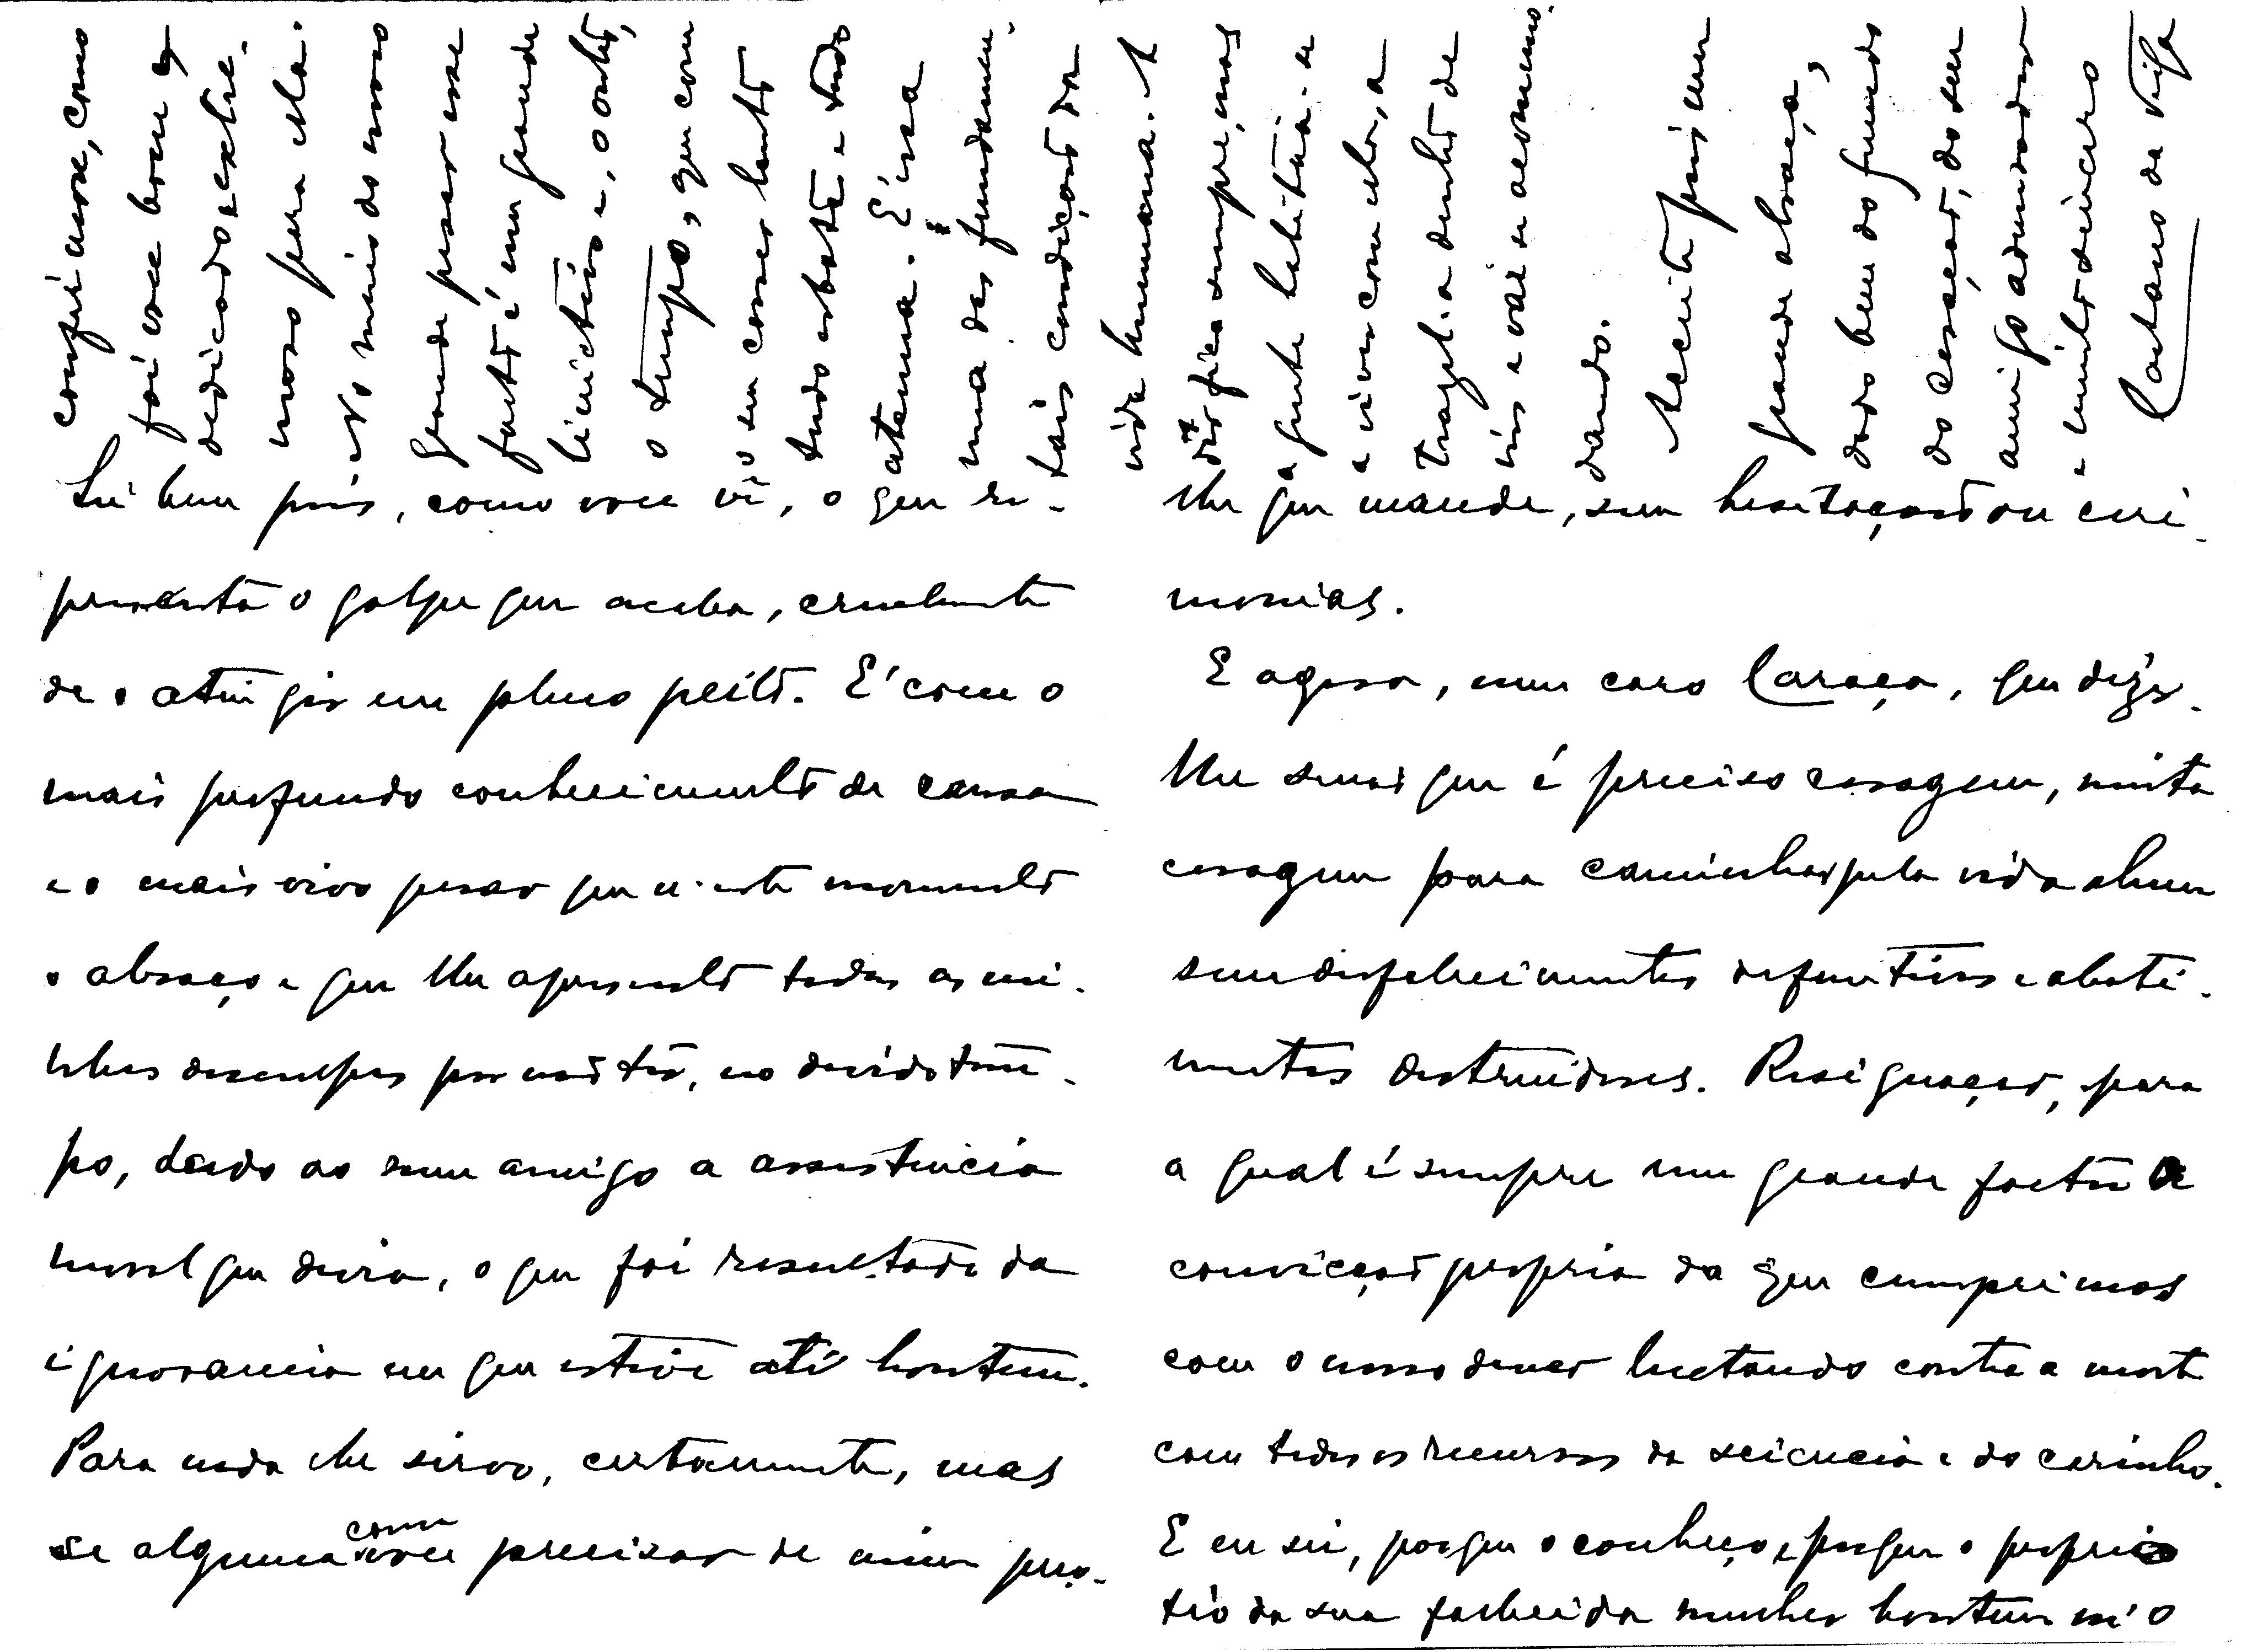 Sei bem pois, como voce vê, o que re-
presenta o golpe que acaba, cruelmente
de o atingir em pleno peito. E' com o
mais profundo conhecimento de causa
e o mais vivo pesar que n'este momento
o abraço e que lhe apresento todas as mi-
nhas desculpas por não ter, no devido tem-
po, dado ao meu amigo a assistencia
moral que devia, o que foi resultado da
ignorancia em que estive até hontem.
Para nada lhe sirvo, certamente, mas
se alguma cousa voce precisar de mim peço-
lhe que mande, sem hesitação ou ceri-
monias.
E agora, meu caro Caraça, que dizer-
lhe senão que é preciso coragem, muita
coragem para caminhar pela vida alem
sem desfalecimentos definitivos e abati-
mentos destruidores. Resignação, para
a qual é sempre um grande factor a
convicção propria de que cumprimos
com o nosso dever luctando contra a morte
com todos os recursos da sciencia e do carinho.
E eu sei, porque o conheço e porque o proprio
tio da sua fallecida mulher hontem m'o
confirmasse, como
foi voce bom e
dedicado e extre-
moso para ella.
No meio do nosso
grande pesar esse
facto é um grande
lenictivo e, o outro,
o tempo, que com
o seu correr lento
tudo esbate e tudo
atenua. E' essa
uma das fundamen-
tais condições da
vida humana. A
dôr fica sempre, mas
a gente habitua-se
a viver com ela, a
trazel-a dentro de
nós e vai-se acomo-
dando.
Aceite pois um
grande abraço,
dado bem do fundo
do coração, do seu
amigo admirador
e muito sincero
Caetano da Veiga